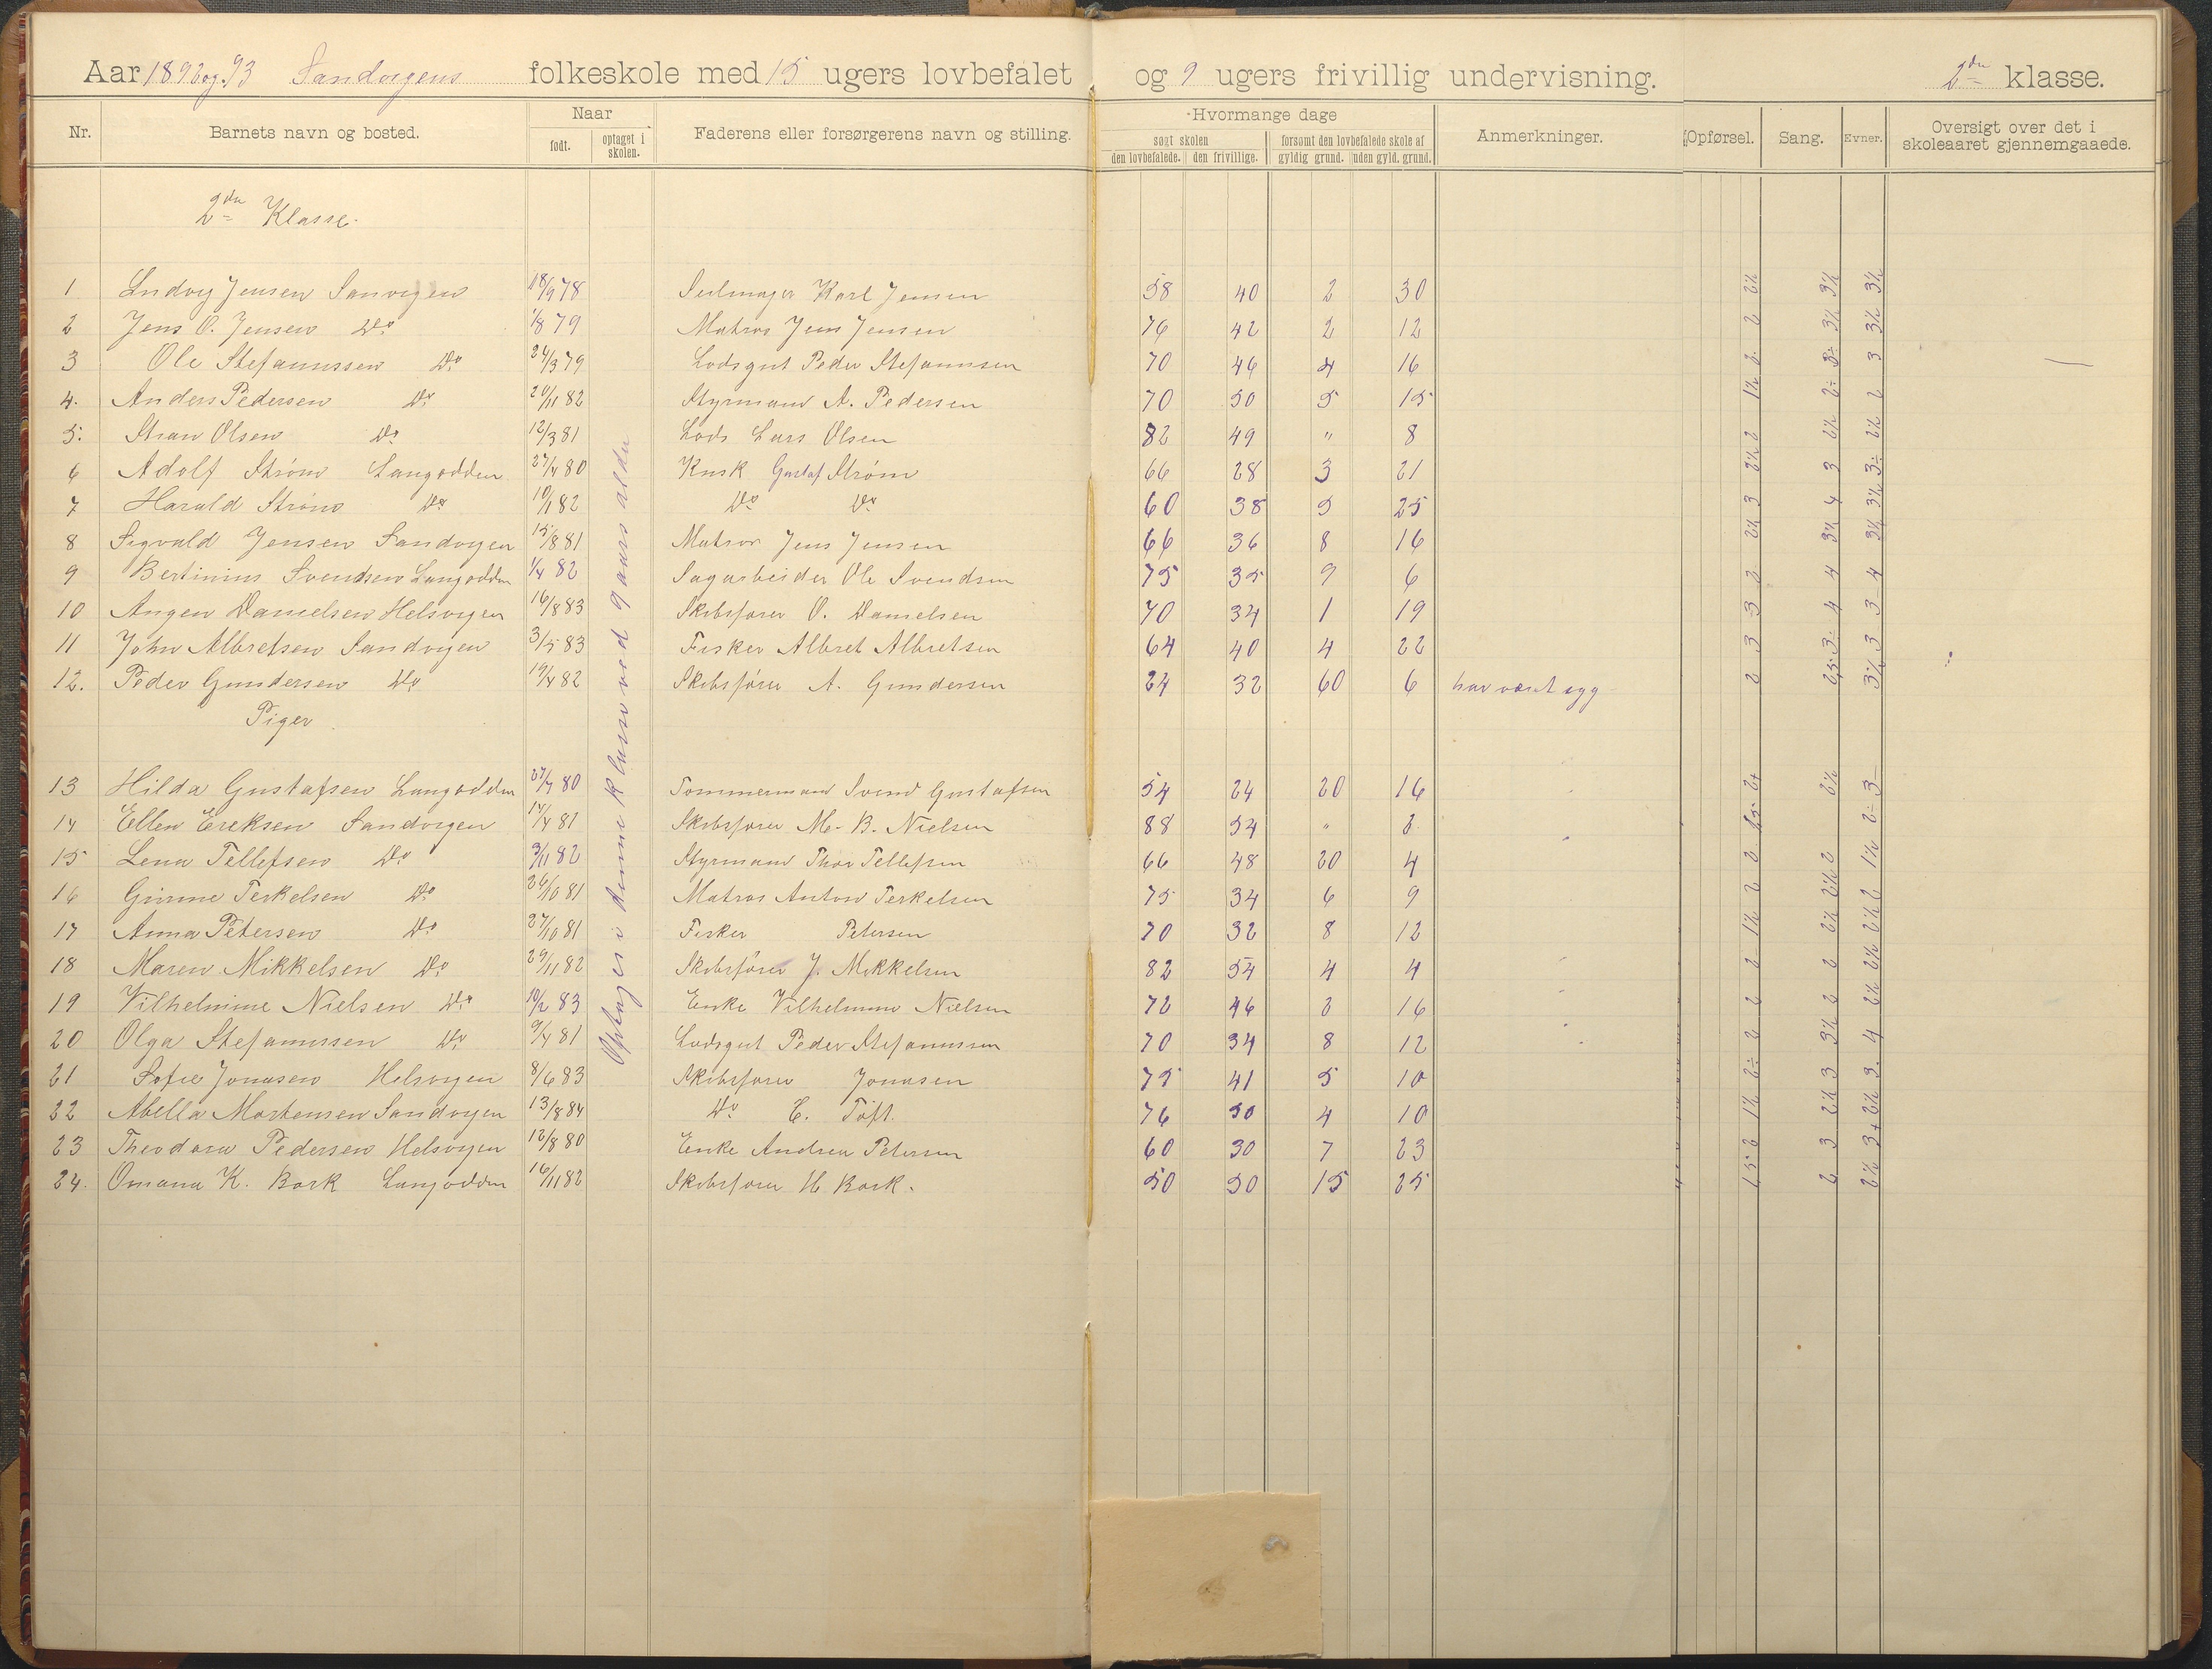 Aar 1892 og. 93 Sandvigens folkeskole med 15 ugers lovbefalet og 9 ugers frivillig undervisning. 2den klasse.
Nr. Barnets navn og bosted. Naar Faderens eller forsørgerens navn og stilling. Hvormange dage Anmerkninger. Opførsel. Sang. Evner. Oversigt over det i skoleaaret gjennemgaaede.
født. optaget i skolen. søgt skolen forsømt den lovbefalede skole af
den lovbefalede. den frivillige. gyldig grund. uden gyld. grund.
2den Klasse.
Optages i denne Klasse ved 9 aars alder
1 Ludvig Jensen Sanvigen 18/9 78 Seilmager Karl Jensen 58 40 2 30 2½ 3½ 3½
2 Jens O. Jensen Do 1/8 79 Matros Jens Jensen 76 42 2 12 2 3½ 3½
3 Ole Stefanussen Do 24/3 79 Lodsgut Peder Stefanussen 70 46 4 16 2 3- 3
4. Anders Pedersen Do 20/11 82 Styrmand A. Pedersen 70 50 5 15 1½ 2- 2
5. Stian Olsen Do 12/3 81 Lods Lars Olsen 82 49 " 8 2 2½ 2½
6 Adolf Strøm Langodden 27/4 80 Kusk Gustaf Strøm 66 28 3 21 2½ 3 3-
7 Harald Strøm Do 10/1 82 Do Do 60 38 5 25 3 4 3½
8 Sigvald Jensen Sandvigen 15/8 81 Matros Jens Jensen 66 36 8 16 2½ 3½ 3½
9 Bertinius Svendsen Langodden 1/4 82 Sagarbeider Ole Svendsen 75 35 9 6 2 4 4
10 Angen Danielsen Helsvigen 16/8 83 Skibsfører O. Danielsen 70 34 1 19 3 4 3
11 John Albretsen Sandvigen 3/5 83 Fisker Albret Albretsen 64 40 4 22 3 3- 3
12. Peder Gundersen Do 19/4 82 Skibsfører A. Gundersen 24 32 60 6 har været syg 2 2,5 3½
Piger
13 Hilda Gustafsen Langodden 27/7 80 Tømmermand Svend Gustafsen 54 24 20 16 2+ 2½ 3
14 Ellen Ereksen Sandvigen 14/4 81 Skibsfører M. B. Nielsen 88 54 " 2 1,5 2-
15 Lena Tellefsen Do 3/11 82 Styrmand Thor Tellefsen 66 48 20 4 2 2 1½
16 Ginine Terkelsen Do 26/10 81 Matros Anton Terkelsen 75 34 6 9 2 2½ 2
17 Anna Petersen Do 27/10 81 Fisker Petersen 70 32 8 12 1½ 2½ 2½
18 Maren Mikkelsen Do 29/11 82 Skibsfører J. Mikkelsen 82 54 4 4 2 2 2½
19 Vilhelmine Nielsen Do 10/2 83 Enke Vilhelmine Nielsen 72 46 2 16 2 2 2½
20 Olga Stefanussen Do 9/4 81 Lodsgut Peder Stefanussen 70 34 8 12 2 3½ 4
21 Sofie Jonasen Helsvigen 8/6 83 Skibsfører Jonasen 75 41 5 10 2- 3 3.
22 Abella Mortensen Sandvigen 13/8 84 Do C. Toft. 76 50 4 10 1½ 2½ 2½
23 Theodora Pedersen Helsvigen 12/8 80 Enke Andrea Petersen 60 30 7 23 2 3 3+
24. Omana K. Bork Langodden 16/11 82 Skibsfører H. Bork. 50 50 15 25 1,5 2 2½